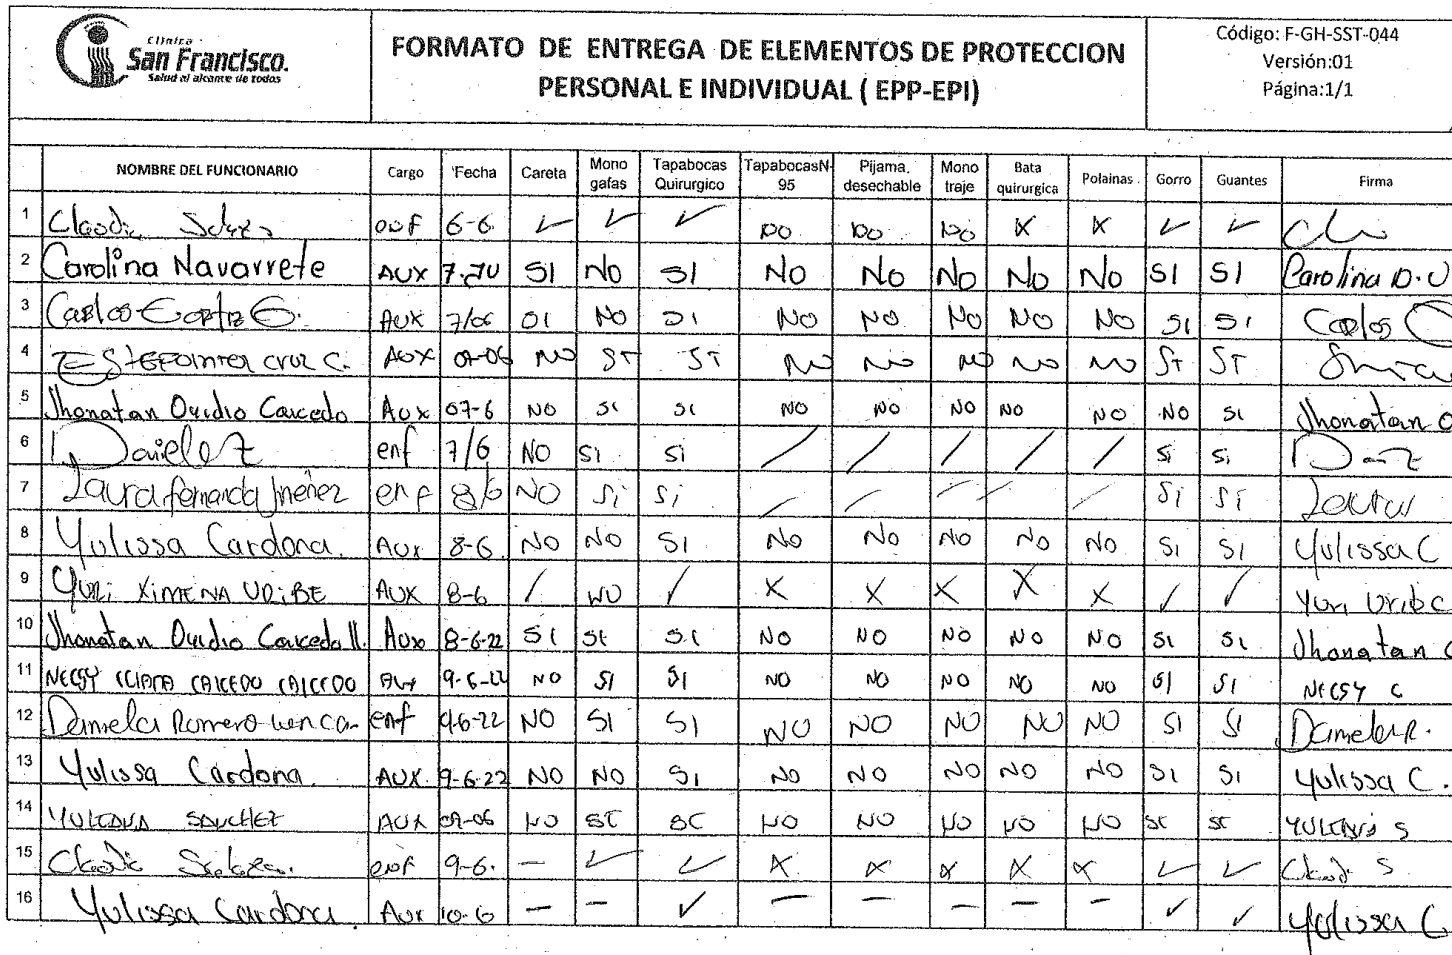 Clínica
San Francisco.
Salud al alcance de todos
FORMATO DE ENTREGA DE ELEMENTOS DE PROTECCION
PERSONAL E INDIVIDUAL ( EPP-EPI)
Código: F-GH-SST-044
Versión:01
Página:1/1
NOMBRE DEL FUNCIONARIO Cargo Fecha Careta Mono gafas Tapabocas Quirurgico TapabocasN-95 Pijama desechable Mono traje Bata quirurgica Polainas Gorro Guantes Firma
1 Claudia 6-6 ✓ ✓ ✓ no no no X X ✓ ✓
2 Carolina Navarrete AUX SI NO SI NO NO NO NO NO SI SI Carolina
3 Carlos AUX 7/06 SI NO SI NO NO NO NO NO SI SI Carlos
4 cruz C. AUX 07-06 NO SI SI NO NO NO NO NO SI SI
5 Jhonatan Ovidio Caicedo Aux 07-6 NO SI SI NO NO NO NO NO NO SI Jhonatan
6 enf 7/6 NO SI SI / / / / / Si Si
7 Laura fernanda enf 8/6 NO Si Si / / / / / Si Si Laura
8 Yulissa Cardona. Aux 8-6 NO NO SI NO NO NO NO NO SI SI Yulissa C
9 YURI XIMENA URIBE AUX 8-6 / NO / X X X X X ✓ ✓ Yuri Uribe
10 Jhonatan Ovidio Caicedo Aux 8-6-22 SI SI SI NO NO NO NO NO SI SI Jhonatan
11 CAICEDO CAICEDO Aux 9-6-22 NO SI SI NO NO NO NO NO SI SI C
12 Daniela Romero enf 9-6-22 NO SI SI NO NO NO NO NO SI SI Daniela R.
13 Yulissa Cardona. AUX. 9-6-22 NO NO SI NO NO NO NO NO SI SI Yulissa C.
14 SANCHEZ AUX 09-06 NO SI SI NO NO NO NO NO SI SI S
15 Claudia enf 9-6. — ✓ ✓ X X X X X ✓ ✓ S
16 Yulissa Cardona Aux 10-6 — — ✓ — — — — — ✓ ✓ Yulissa C